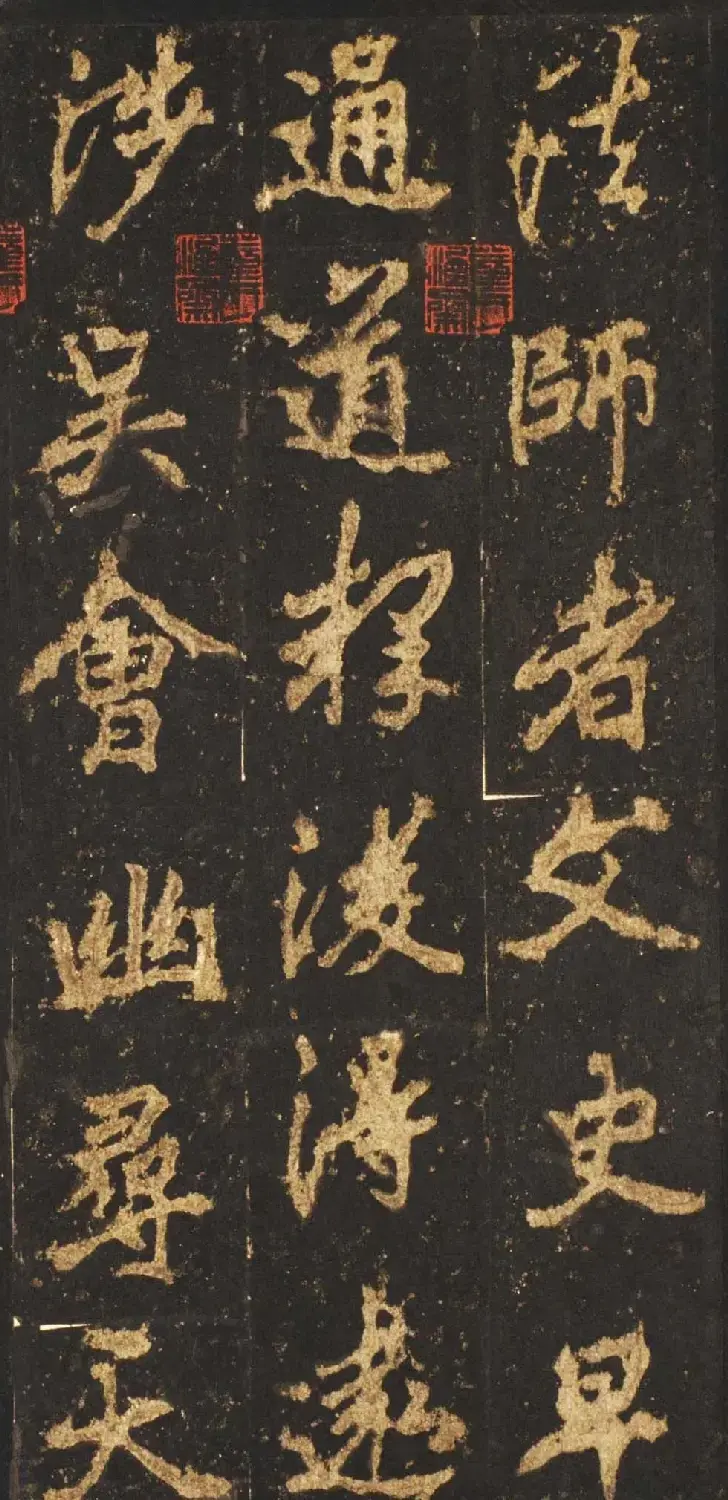 法師者文史早
通道釋後得遠
涉吳會幽尋天